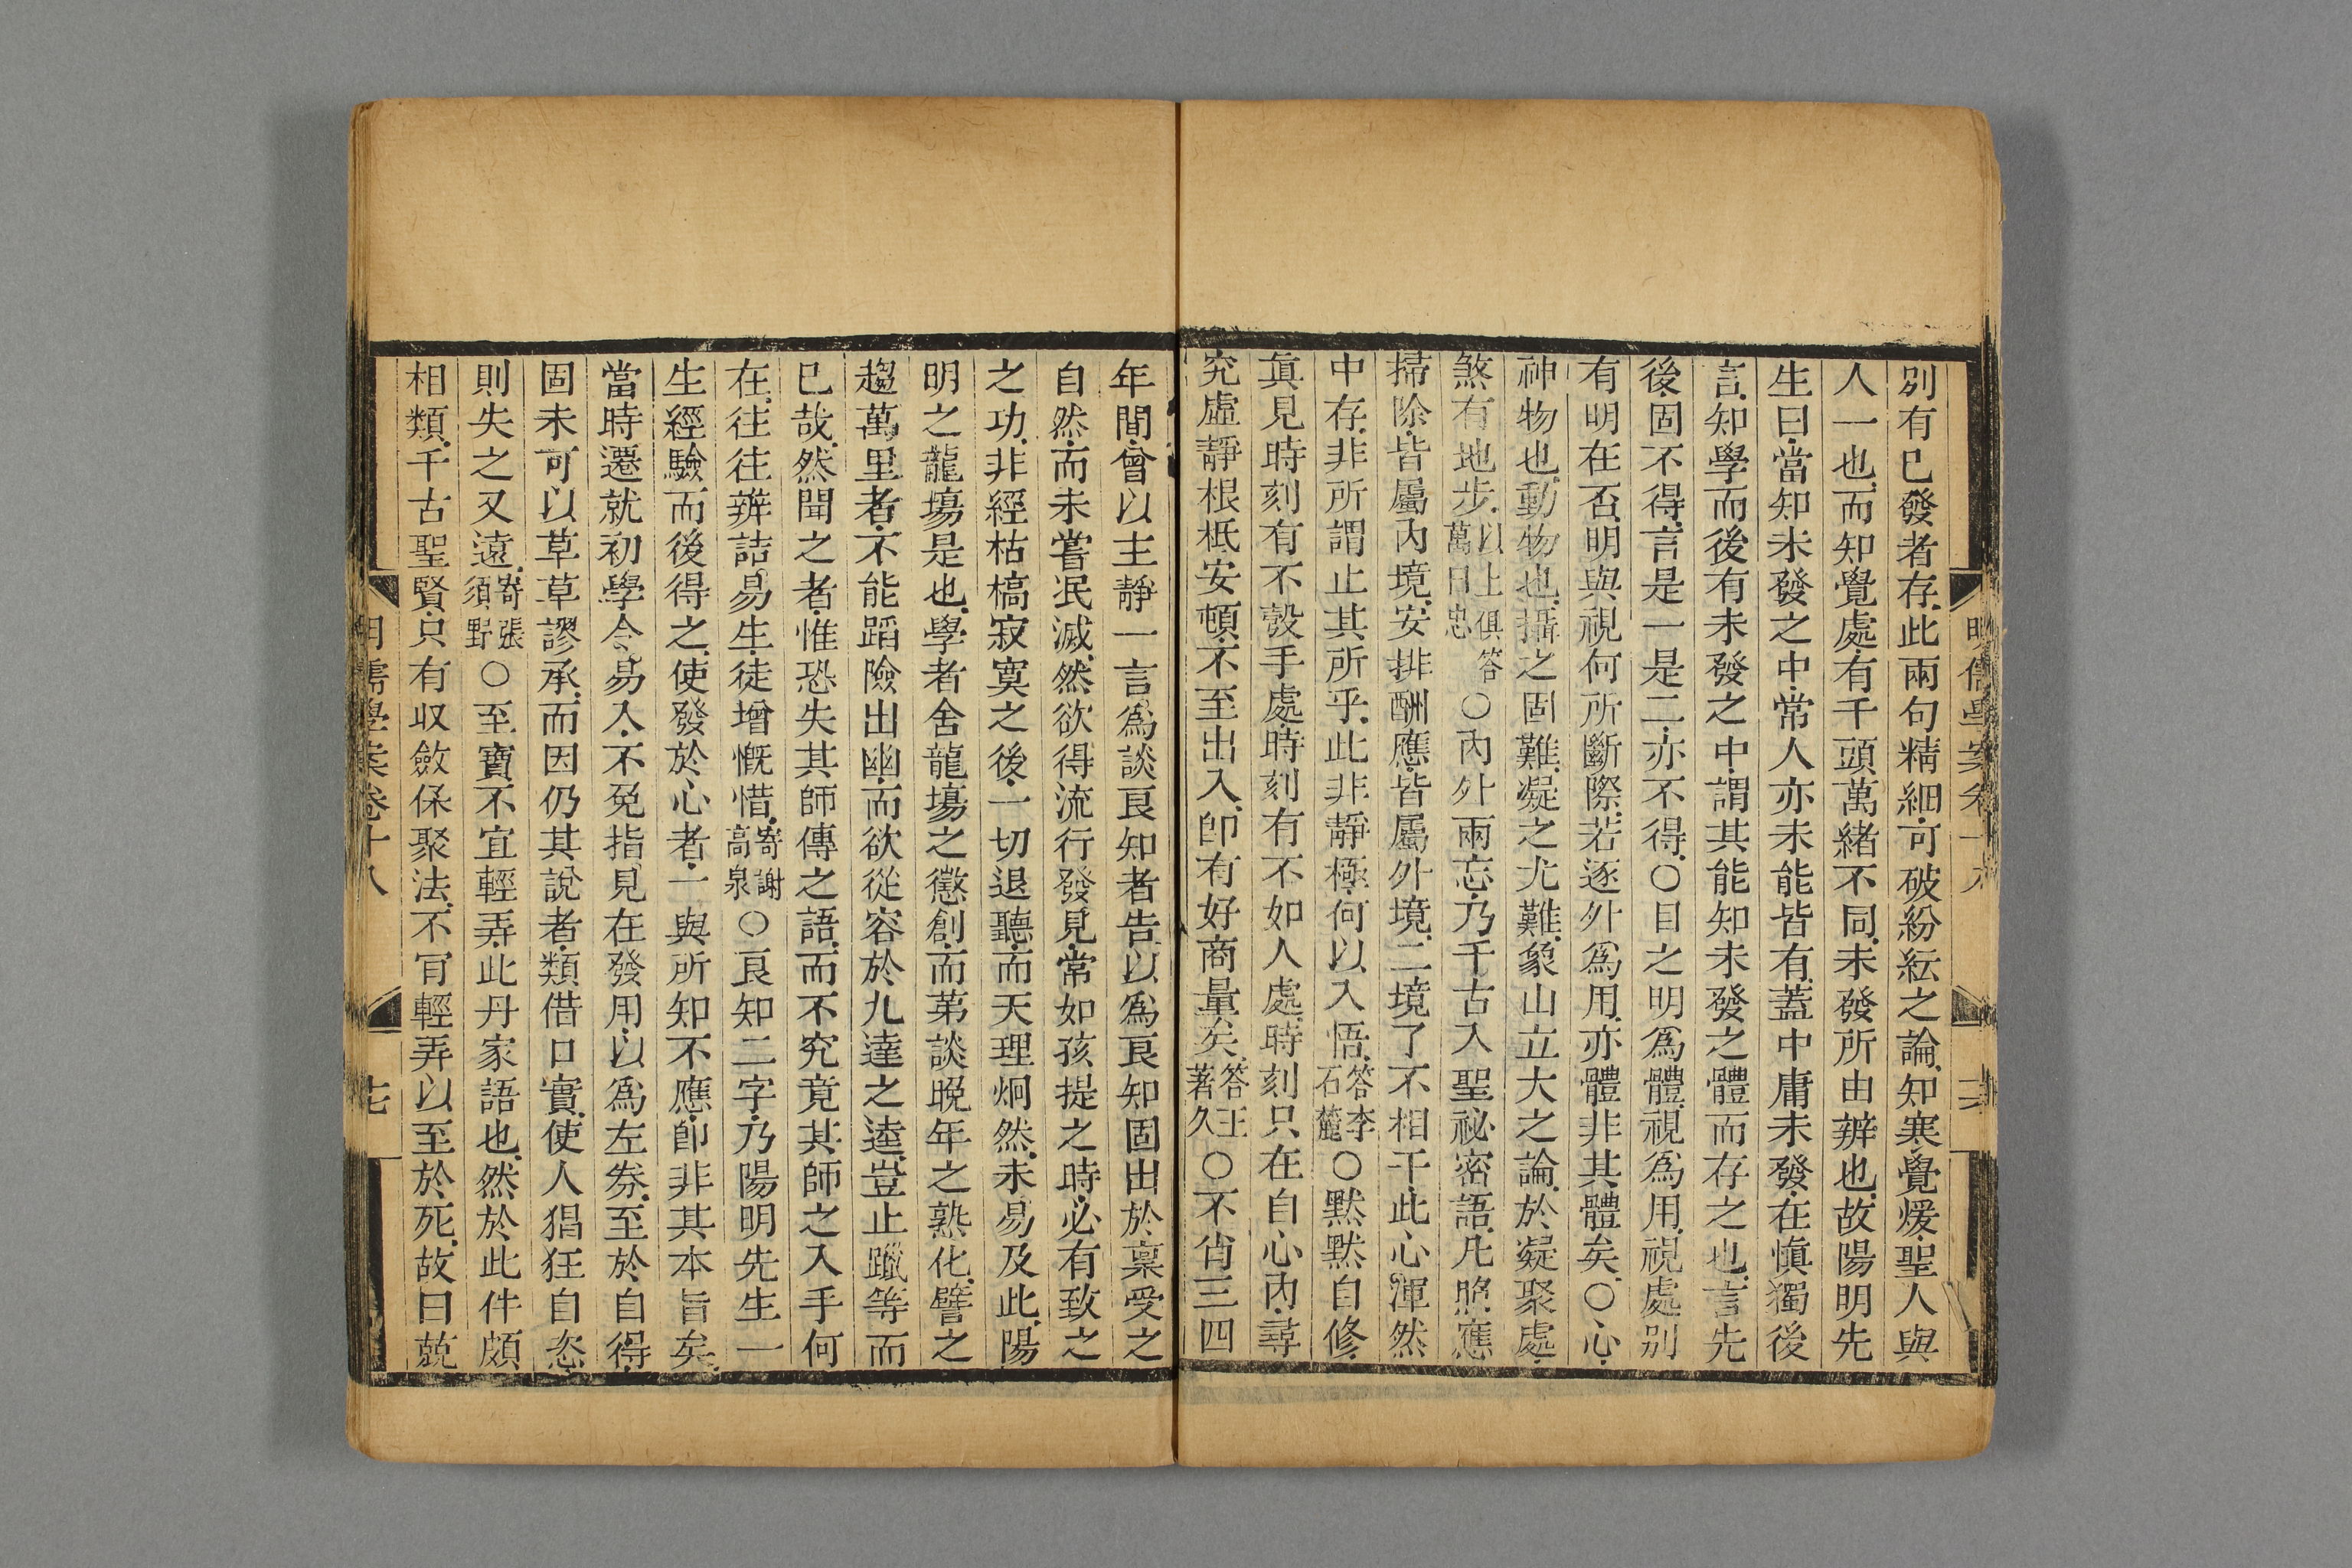 別有已發者存此兩句精細可破紛紜之論知寒覺煖聖人與
人一也而知覺處有千頭萬緒不同未發所由辨也故陽明先
生曰當知未發之中常人亦未能皆有蓋中庸未發在慎獨後
言知學而後有未發之中謂其能知未發之體而存之也言先
後固不得言是一是二亦不得○目之明爲體視爲用視處別
有明在否明與視何所斷際若逐外爲用亦體非其體矣○心
神物也動物也攝之固難凝之尤難象山立大之論於凝聚處
煞有地步以上俱答萬日忠○內外兩忘乃千古入聖祕密語凡照應
掃除皆屬內境安排酬應皆屬外境二境了不相干此心渾然
中存非所謂止其所乎此非靜極何以入悟答李石麓○默默自修
眞見時刻有不彀手處時刻有不如人處時刻只在自心內尋
究虛靜根柢安頓不至出入卽有好商量矣答王著久○不肖三四
年間曾以主靜一言爲談良知者告以爲良知固出於稟受之
自然而未嘗泯滅然欲得流行發見常如孩提之時必有致之
之功非經枯槁寂寞之後一切退聽而天理炯然未易及此陽
明之龍塲是也學者舍龍塲之懲創而第談晚年之熟化譬之
趨萬里者不能蹈險出幽而欲從容於九達之逵豈止躐等而
已哉然聞之者惟恐失其師傳之語而不究竟其師之入手何
在往往辨詰易生徒增慨惜寄謝高泉○良知二字乃陽明先生一
生經驗而後得之使發於心者一與所知不應卽非其本旨矣
當時遷就初學令易入不免指見在發用以爲左券至於自得
固未可以草草謬承而因仍其說者類借口實使人猖狂自恣
則失之又遠寄張須野○至寶不宜輕弄此丹家語也然於此件頗
相類千古聖賢只有収斂保聚法不肎輕弄以至於死故曰兢
明儒學案卷十八
七